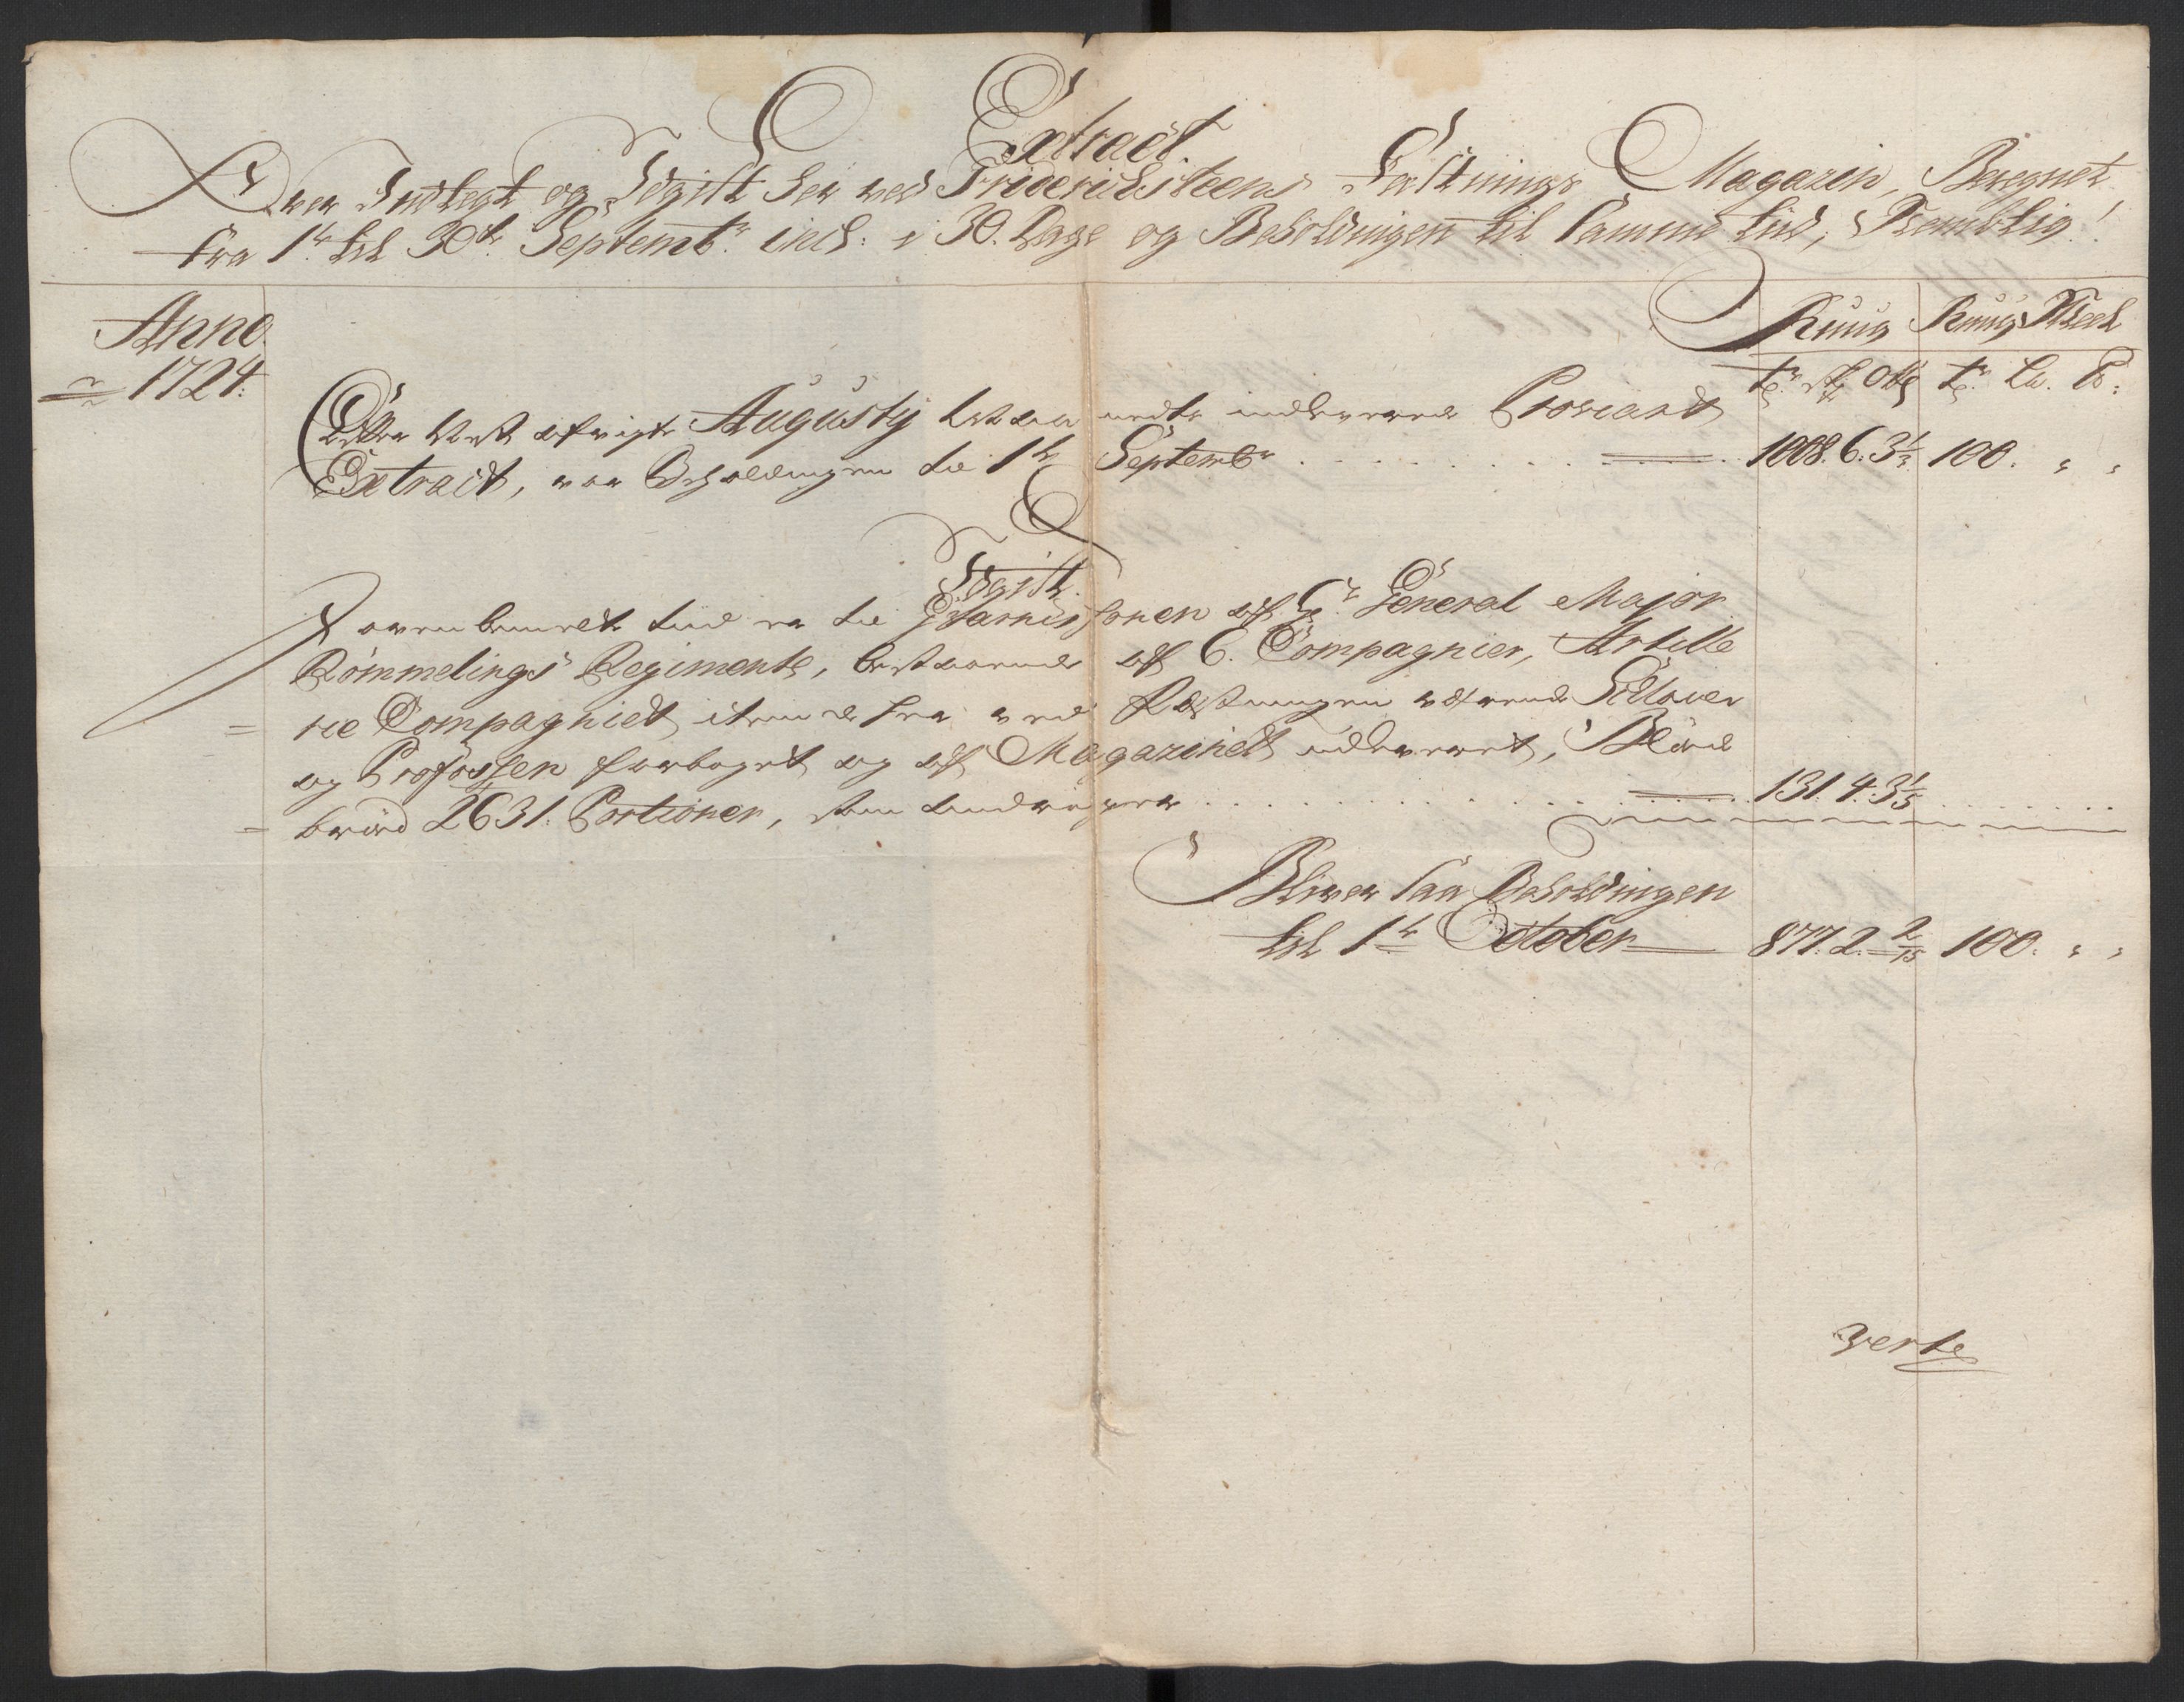 Extract.
Over Indtegt og Udgift her ved Friderichsteens Festnings Magazin, Beregnet
fra 1te til 30te Septembr. incl: i 30. Dage og Beholdningen til samme tiid, Nembtlig!
Anno
1724.
Ruug Ruug Meel
tr. sk. Otg tr. Lv. ℔:
Efter Nest afvigte Augusty
indleverede Proviant
Extract, var Beholdningen til 1te Septembr . . . 1008. 6. 3 1/3 100. " "
Udgift.
I ovenbemelte tiid er til Guarnisonen af Hr. General Major
Rømmelings Regimente, bestaaende af 6. Compagnier, Artille
rie Compagniet, item de her ved Festningen værende Sclaver
og Profossen forbaget og af Magazinet udleveret,
brød 2631. Portioner, som . . . 131. 4. 3 1/5
Bliver saa Beholdningen
til 1te October 877. 2. 2/15 100. " "
verte